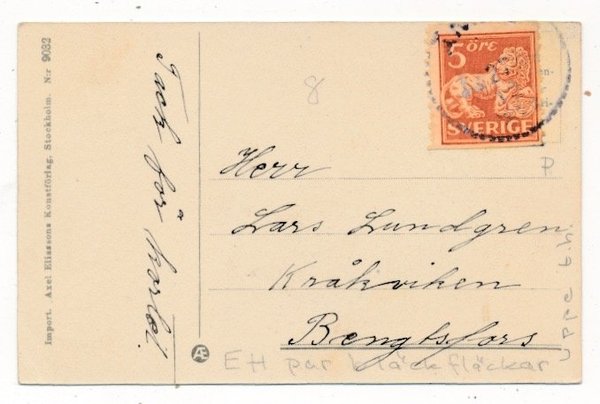 Import. Axel Eliassons Konstförlag, Stockholm. N:r 9032
Tack för kortet!
8
5 ÖRE
SVERIGE
P
Herr
Lars Lundgren
Kråkviken
Bengtsfors
EH par bläckfläckar
uppe t.h.
AE